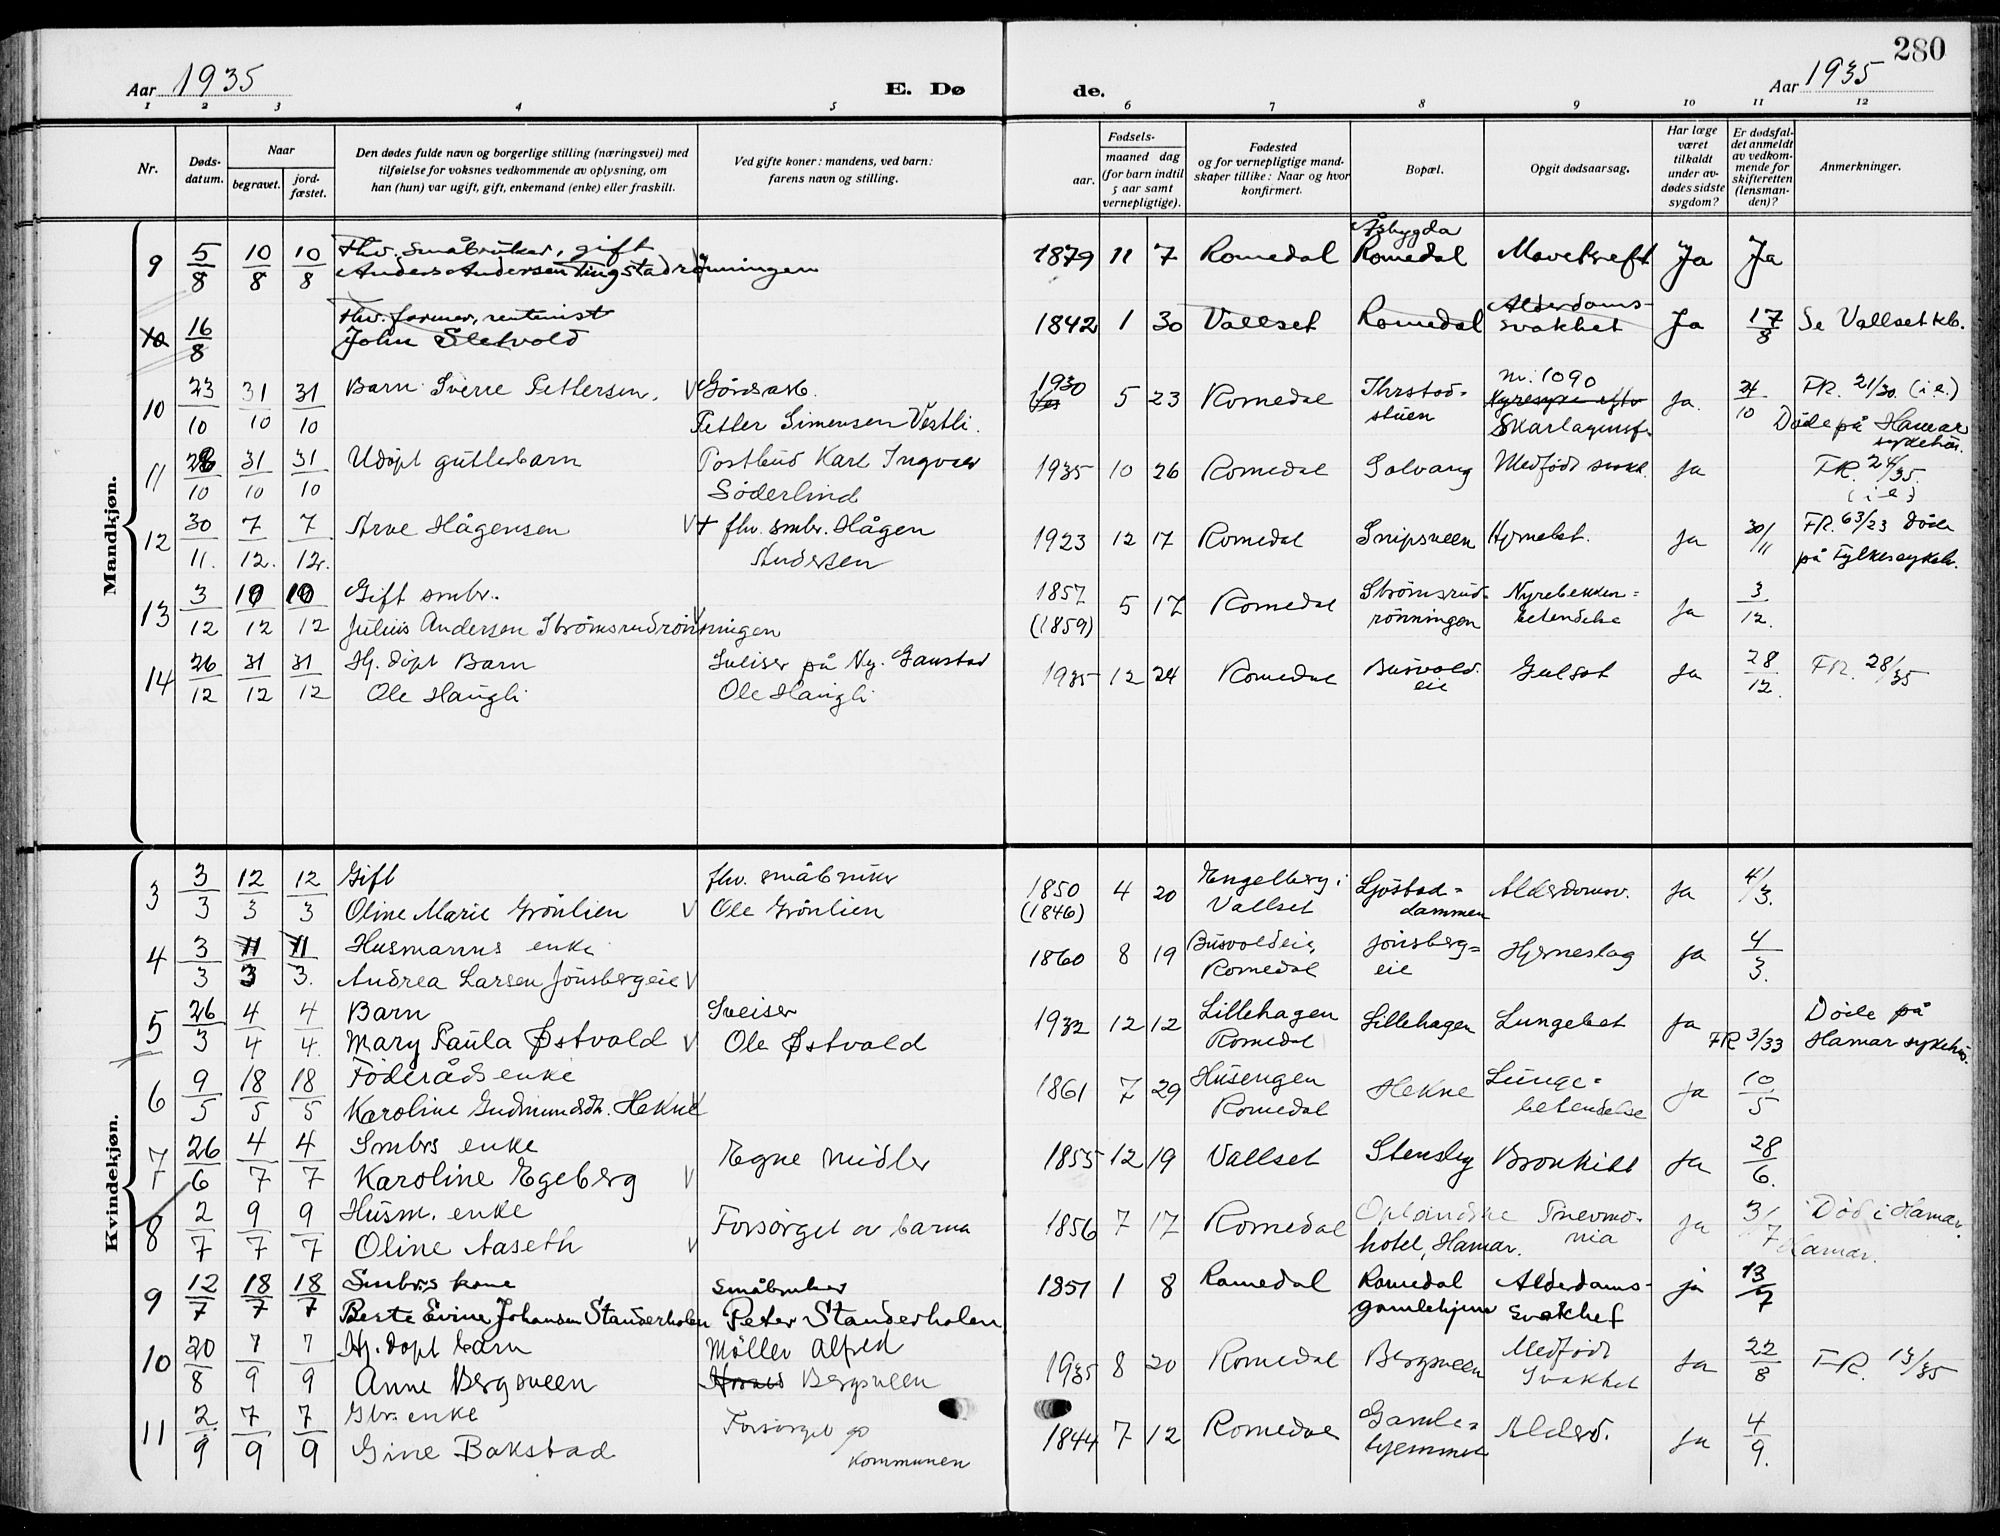 280
Aar 1935
E. Dø
de.
Aar 1935
1 2 3 4 5 6 7 8 9 10 11 12
Nr.
Døds-
datum.
Naar
begravet.
jord-
fæstet.
Den dødes fulde navn og borgerlige stilling (næringsvei) med
tilføielse for voksnes vedkommende av oplysning, om
han (hun) var ugift, gift, enkemand (enke) eller fraskilt.
Ved gifte koner: mandens, ved barn:
farens navn og stilling.
Fødsels-
aar.
maaned dag
(for barn indtil
5 aar samt
vernepligtige).
Fødested
og for vernepligtige mand-
skaper tillike: Naar og hvor
konfirmert.
Bopæl.
Opgit dødsaarsag.
Har læge
været
tilkaldt
under av-
dødes sidste
sygdom?
Er dødsfal-
det anmeldt
av vedkom-
mende for
skifteretten
(lensman-
den)?
Anmerkninger.
Mandkjøn.
Fhv. småbruker, gift Åsbygda
9 5/8 10/8 10/8 Anders Andersen Tingstadrønningen 1879 11 7 Romedal Romedal Mavekreft Ja Ja
Fhv. farmer, rentenist Alderdoms-
10 16/8 John Sletvold 1842 1 30 Vallset Romedal svakhet Ja 17/8 Se Vallset kb.
Barn Sverre Pettersen. V Gårdsarb. 1930 nr. 1090 FR. 21/30. (i.e.)
10 23/10 31/10 31/10 Petter Simensen Vestli. 5 23 Romedal stuen Skarlagensf. Ja. 24/10 Døde på Hamar
sykehus.
11 28/10 31/10 31/10 Udøpt guttebarn Postbud Karl Ingvar 1935 10 26 Romedal Solvang Medfødt svakh. Ja FR. 24/35.
Söderlind (i.e)
12 30/11. 7/12. 7/12. Arne Hågensen V + fhv. smbr. Hågen 1923 12 17 Romedal Snipsveen Hjernebet. Ja 30/11 FR. 63/23 Døde
Andersen på Fylkessykeh.
13 3/12 10/12 10/12 Gift smbr. 1857 5 17 Romedal Strømsrud- Nyrebekken= Ja 3/12.
Julius Andersen Strømsrudrønningen (1859) rønningen betendelse
14 26/12 31/12 31/12 Hj. døpt Barn Sveiser på Ny. Gaustad 1935 12 24 Romedal Busvold. Gulsot Ja 28/12. FR. 28/35
Ole Haugli Ole Haugli eie
Kvindekjøn.
3 3/3 12/3 12/3 Gift fhv. småbruker 1850 4 20 Engelberg i Ljøstad= Alderdomssv. Ja 4/3.
Oline Marie Grönlien V Ole Grönlien (1846) Vallset dammen
4 3/3 11/3 11/3. Husmanns enke 1860 8 19 Busvoldeie, Jønsberg= Hjerneslag Ja 4/3.
Andrea Larsen Jønsbergeie V Romedal eie
5 26/3 4/4 4/4. Barn Sveiser 1932 12 12 Lillehagen Lillehagen Lungebet Ja Døde på
Mary Paula Østvold V Ole Østvold Romedal FR 3/33 Hamar sykehus.
6 9/5 18/5 18/5 Föderåds enke 1861 7 29 Husengen Hekne Lunge= Ja 10/5
Karoline Gudmundsdt. Hekne V Romedal betendelse
7 26/6 4/7 4/7 Smbrs enke Egne midler 1855 12 19 Vallset Stensby Bronkitt Ja 28/6.
Karoline Egeberg V
8 2/7 9/7 9/7 Husm. enke Forsørget av barna 1856 7 17 Romedal Oplandske Pnevmo- Ja 3/7 Død i Hamar.
Oline Aaseth V hotel, Hamar. nia Hamar.
9 12/7 18/7 18/7 Smbrs kone Småbruker 1851 1 8 Romedal Romedal Alderdoms- ja 13/7
Berte Evine Johansen Standerholen Peter Standerholen gamlehjem svakhet
10 20/8 7/9 7/9 Hj. døpt barn Møller Alfred 1935 8 20 Romedal Bergsveen Medfødt Ja 22/8 FR. 13/35
Anne Bergsveen Bergsveen Svakhet
11 2/9 7/9 7/9 Gbr. enke Forsørget av 1844 7 12 Romedal Gamle= Alderd. Ja 4/9.
Gine Bakstad Kommunen hjemmet